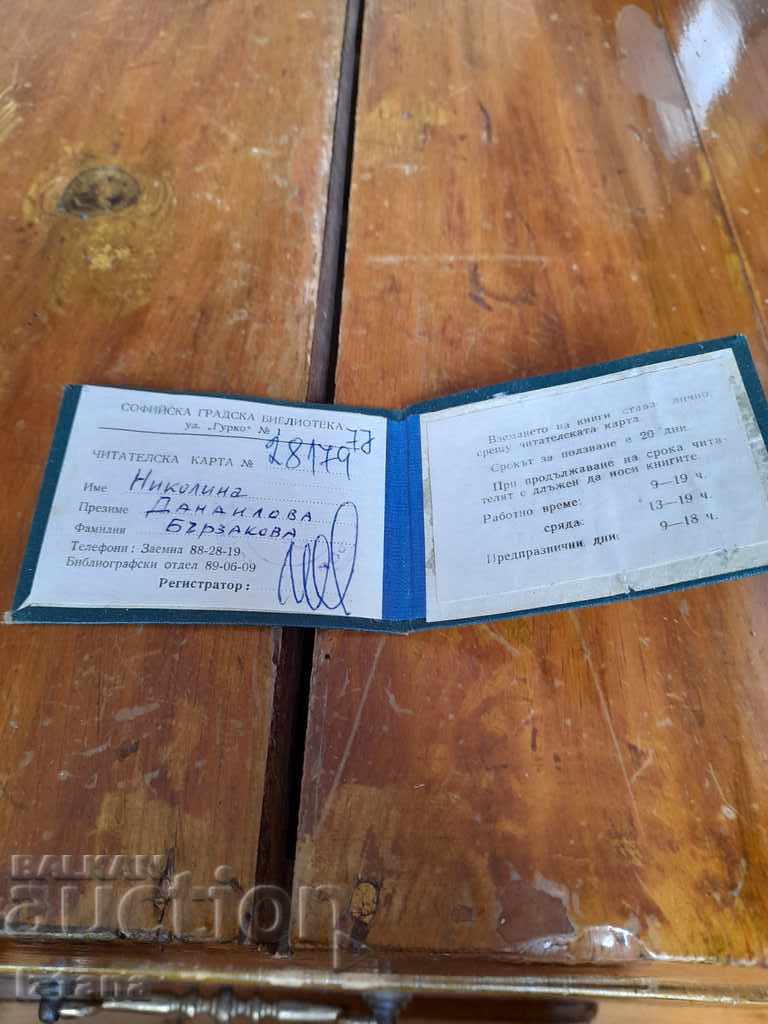 СОФИЙСКА ГРАДСКА БИБЛИОТЕКА
ул. „Гурко“ № 1
77
ЧИТАТЕЛСКА КАРТА № 28179
Име Николина
Презиме Данаилова
Фамилни Бързакова
Телефони: Заемна 88-28-19
Библиографски отдел 89-06-09
Регистратор:
Вземането на книги става лично
срещу читателската карта.
Срокът за ползване е 20 дни.
При продължаване на срока чита-
телят е длъжен да носи книгите.
Работно време: 9—19 ч.
сряда: 13—19 ч.
Предпразнични дни: 9—18 ч.
BALKAN
auction
izana